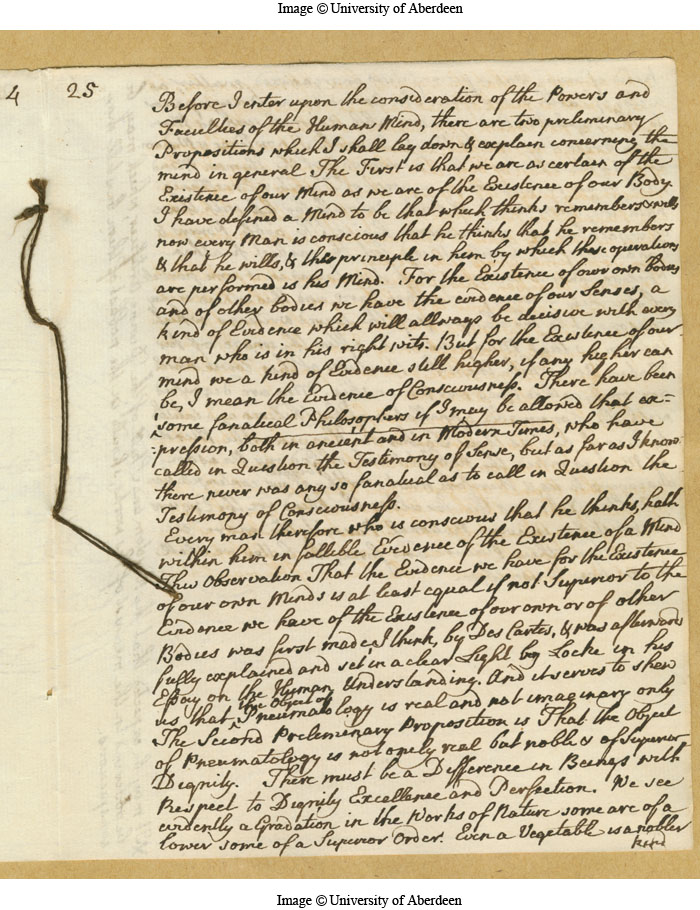 Image © University of Aberdeen
4 25
Before I enter upon the consideration of the Powers and
Faculties of the Human Mind, there are two preliminary
Propositions which I shall lay down & explain concerning the
mind in general The First is that we are as certain of the
Existence of our Mind as we are of the Existence of our Body.
I have defined a Mind to be that which thinks remembers & wills
now every Man is conscious that he thinks that he remembers
& that he wills, & the principle in him by which these operations
are performed is his Mind. For the Existence of our own bodies
and of other bodies we have the evidence of our Senses, a
kind of Evidence which will allways be decisive with every
man who is in his right wits. But for the Existence of our
mind we a kind of Evidence still higher, if any higher can
be, I mean the Evidence of Consciousness. There have been
some fanatical Philosophers if I may be allowed that ex=
=pression, both in ancient and in Modern Times, who have
called in Question the Testimony of Sense, but as far as I know
there never was any so fanatical as to call in Question the
Testimony of Consciousness.
Every man therefore who is conscious that he thinks, hath
within him in fallible Evedence of the Existence of a Mind
This Observation That the Evidence we have for the Existence
of our own Minds is at least equal if not Superior to the
Evidence we have of the Existence of our own or of other
Bodies was first made, I think, by Des Cartes, & was afterwards
fully explained and set in a clear Light by Locke in his
Essay on the Human Understanding. And it serves to shew
us that ^the Object of Pneumatology is real and not imaginary only
The Second Preliminary Proposition is That the Object
of Pneumatology is not onely real but noble & of Superior
Dignity. There must be a Difference in Beings with
Respect to Dignity Excellence and Perfection. We see
evidently a Gradation in the Works of Nature some are of a
lower some of a Superior Order. Even a Vegetable is a nobler
kind
Image © University of Aberdeen